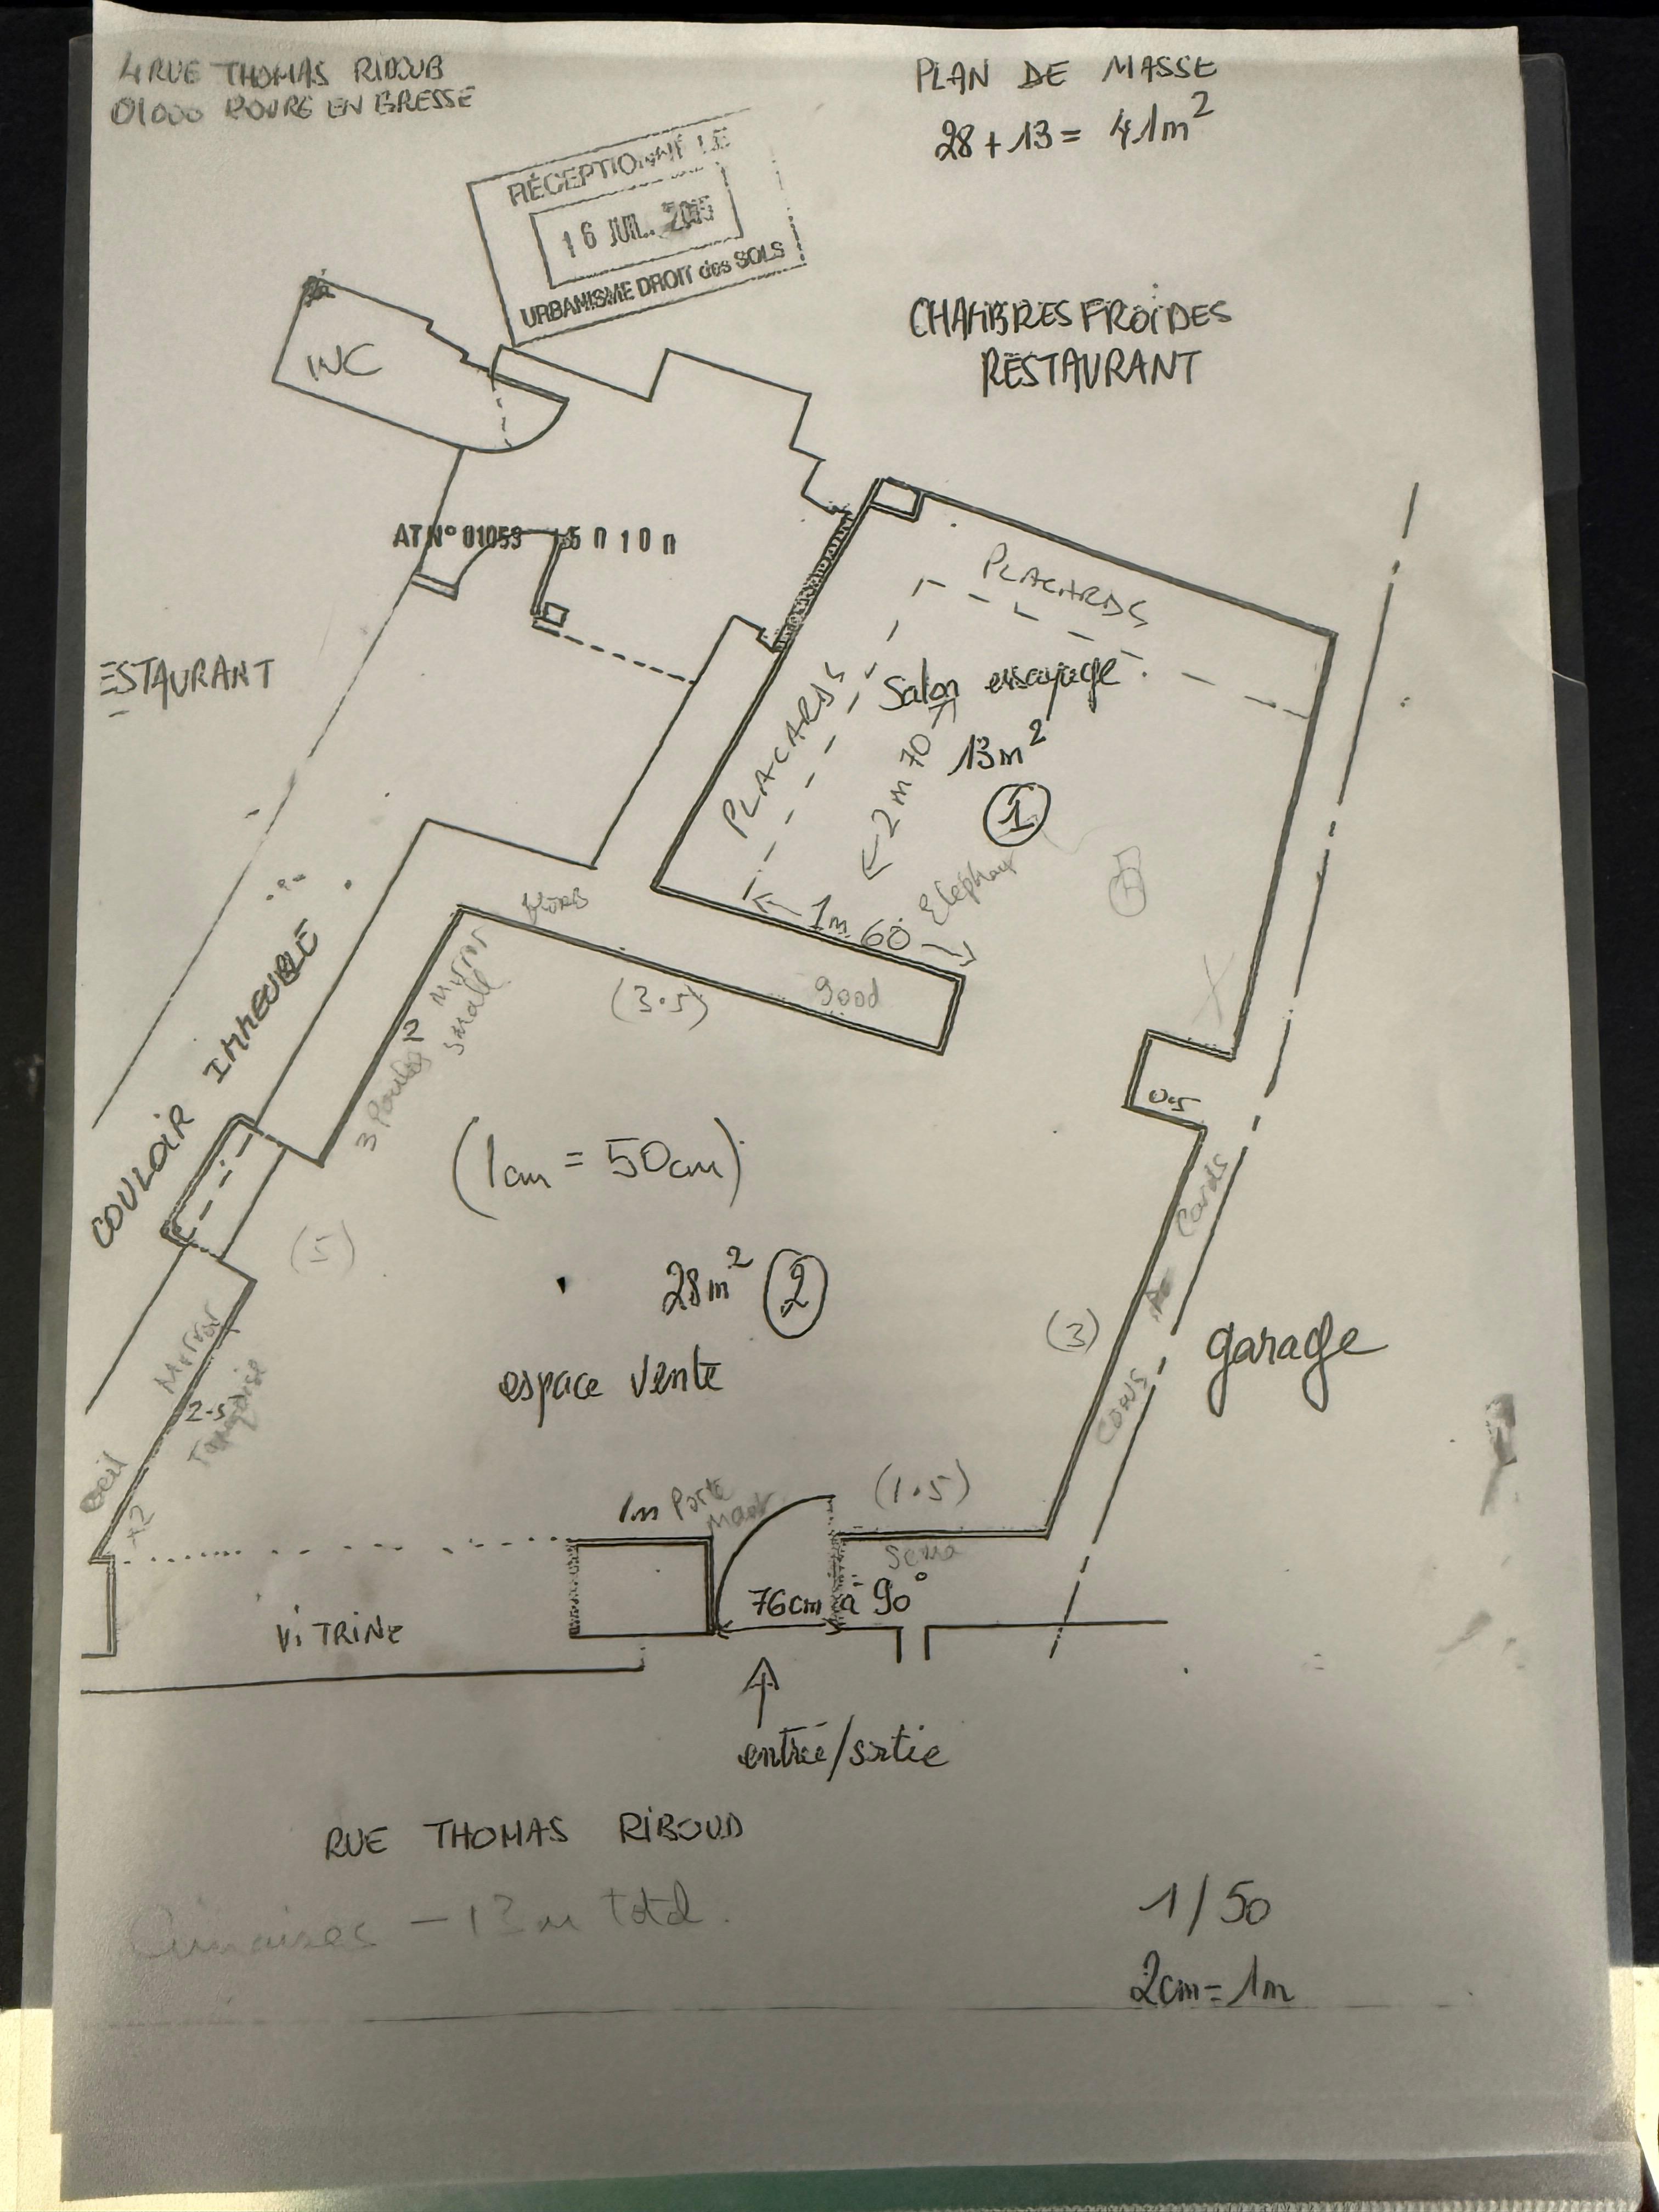 4 RUE THOMAS RIBOUB
01000 BOURG EN BRESSE
PLAN DE MASSE
28 + 13 = 41m²
RÉCEPTIONNÉ LE
16 JUIL. 2015
URBANISME DROIT des SOLS
CHAMBRES FROIDES
RESTAURANT
WC
AT N° 01053 15 0 10
ESTAURANT
PLACARDS
Salon essayage
PLACARDS
2m70
13m²
1
Elephant
1m60
good
(3.5)
Mirror
small
3 Poules
COULOIR IMMEUBLE
0.5
(1cm = 50cm)
Cards
(5)
28m² 2
(3)
garage
espace vente
Mirror
2.5
Cows
oeil
x2
1m Porte
(1.5)
76cm à 90°
VITRINE
entrée/sortie
RUE THOMAS RIBOUD
13m total.
1/50
2cm = 1m